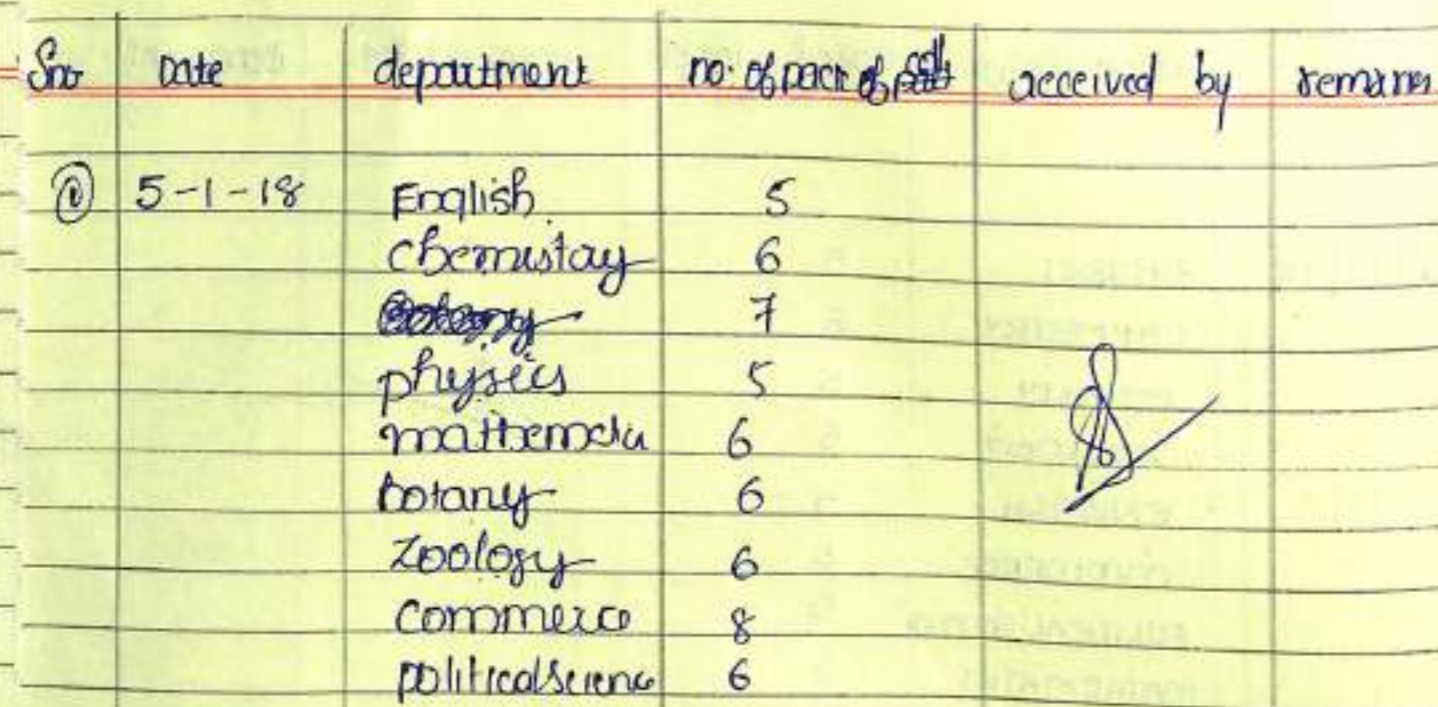 Sno Date department no. of pack of received by remarks
① 5-1-18 English 5
chemistry 6
7
physics 5
mathematics 6
botany 6
Zoology 6
commerce 8
political science 6